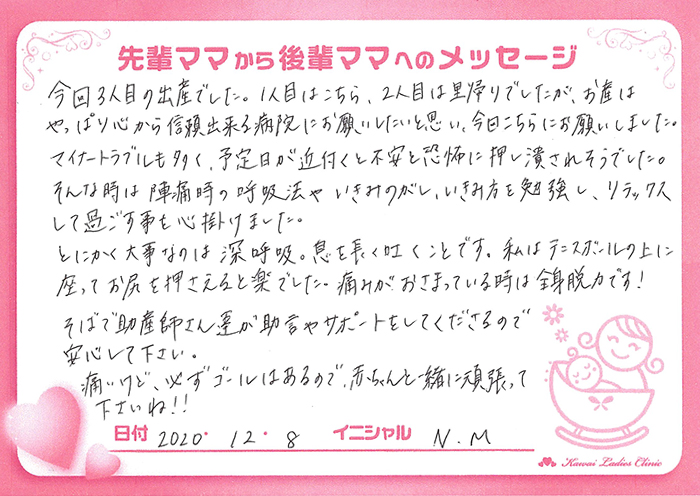 先輩ママから後輩ママへのメッセージ
今回3人目の出産でした。1人目はこちら、2人目は里帰りでしたが、お産は
やっぱり心から信頼出来る病院にお願いしたいと思い、今回こちらにお願いしました。
マイナートラブルも多く、予定日が近付くと不安と恐怖に押し潰されそうでした。
そんな時は陣痛時の呼吸法やいきみのがし、いきみ方を勉強し、リラックス
して過ごす事を心掛けました。
とにかく大事なのは深呼吸。息を長く吐くことです。私はテニスボールの上に
座ってお尻を押さえると楽でした。痛みがおさまっている時は全身脱力です!
そばで助産師さん達が助言やサポートをしてくださるので
安心して下さい。
痛いけど、必ずゴールはあるので、赤ちゃんと一緒に頑張って
下さいね!!
日付 2020・12・8 イニシャル N.M
Kawai Ladies Clinic